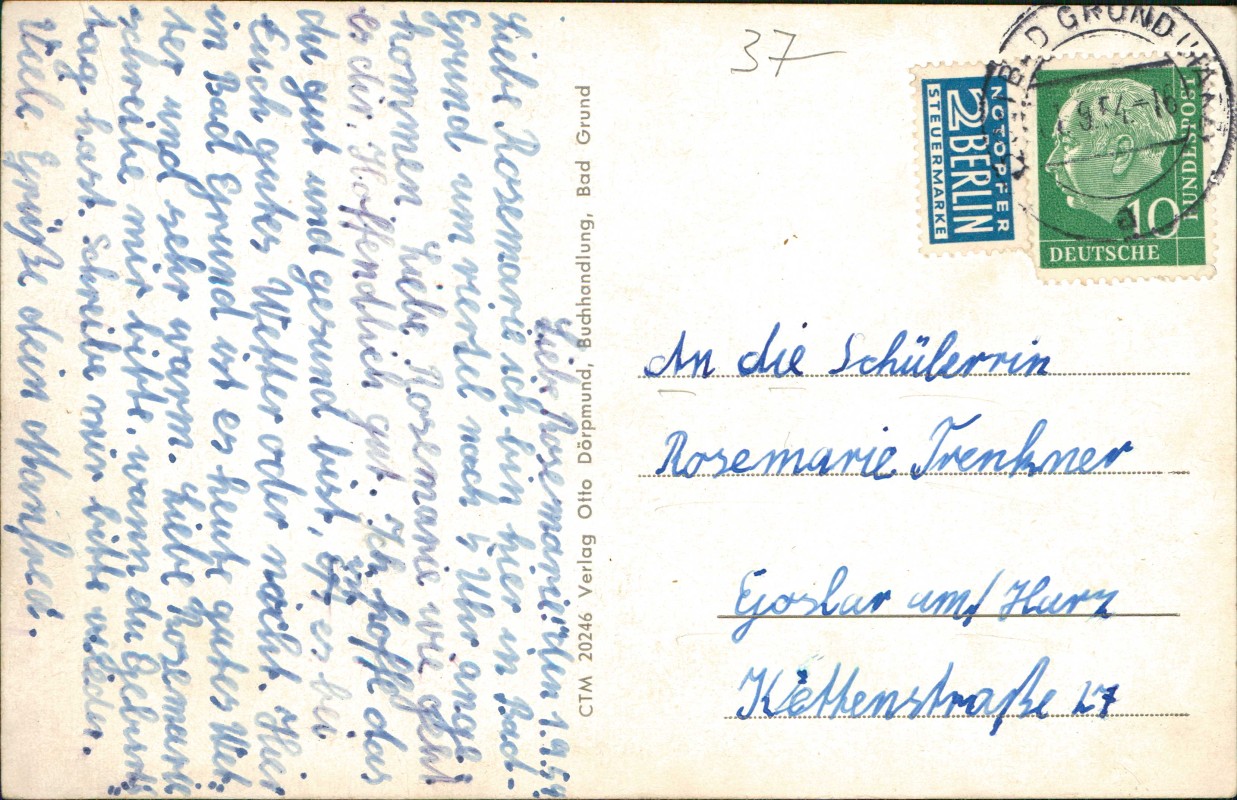 37
BAD GRUND (HARZ)
9.54.-18
NOTOPFER
2 BERLIN
STEUERMARKE
10
DEUTSCHE
BUNDESPOST
Liebe Rosemarie! den 1.9.54
Liebe Rosemarie ich bin hier in Bad-
Grund um viertel nach 5 Uhr ange-
kommen. Liebe Rosemarie wie geht
es dir. Hoffendlich gut. Ich hoffe das
du gut und gesund bist, ist es bei
Euch gutes Wetter oder nicht. Hier
in Bad Grund ist es heute gutes Wet-
ter und sehr warm. Liebe Rosemarie
schreibe mir bitte, wann du Geburts-
tag hast. Schreibe mir bitte wieder.
Viele Grüße dein Manfred.
CTM 20246 Verlag Otto Dörpmund, Buchhandlung, Bad Grund
An die Schülerrin
Rosemarie Trenkner
Goslar am/Harz
Kettenstraße 27